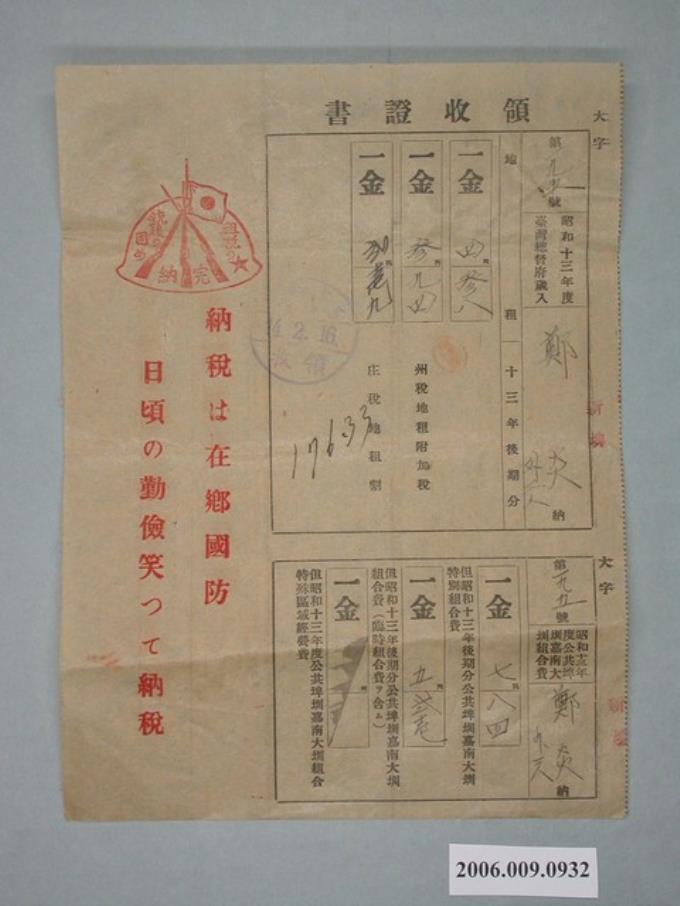 領收證書
大字
新塭
第九五號
昭和十三年度
臺灣總督府歲入
鄭炎
外一人
納
地租 十三年後期分
一金 四円参八
一金 参円九四
州稅地租附加稅
一金
庄稅地租割
4.2.16
領收
17633
大字
新塭
第一九五號
昭和十三年
度公共埤
圳嘉南大
圳組合費
鄭炎
外一人
納
一金 七円八四
但昭和十三年後期分公共埤圳嘉南大圳
特別組合費
一金
但昭和十三年後期分公共埤圳嘉南大圳
組合費(臨時組合費ヲ含ム)
一金
但昭和十三年度公共埤圳嘉南大圳組合
特殊區域經費費
銃後の
固め
完納
納稅は在鄉國防
日頃の勤儉笑つて納稅
2006.009.0932